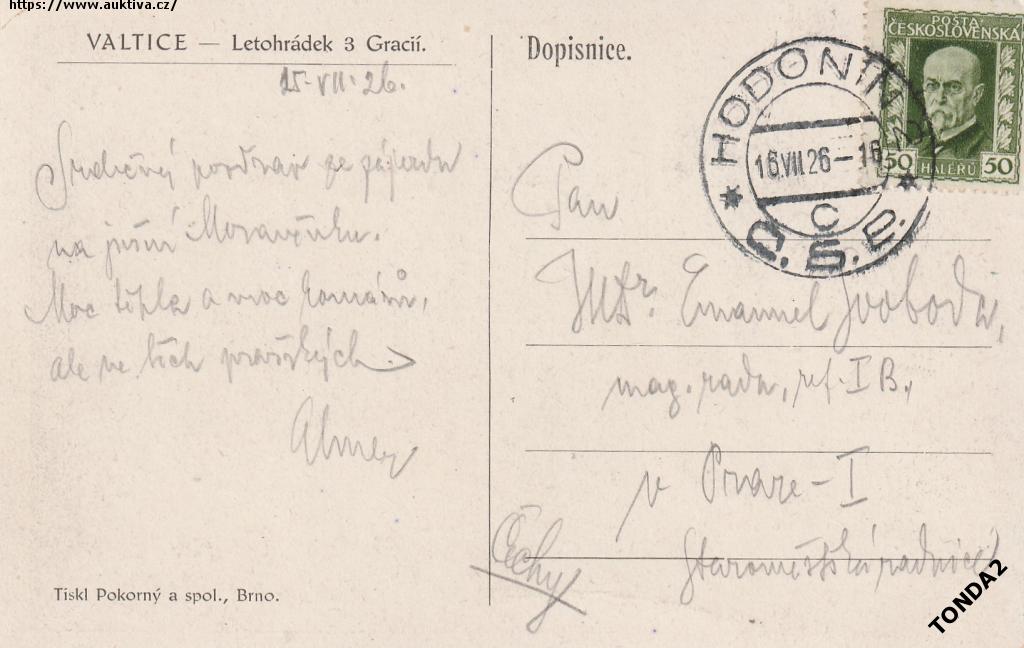 https://www.auktiva.cz/
VALTICE — Letohrádek 3 Gracií.
15. VII. 26.
Srdečný pozdrav ze zájezdu
na jižní Moravěnku.
Moc tepla a moc komárů,
ale ne těch pražských.
Dopisnice.
POŠTA
ČESKOSLOVENSKÁ
50 HALÉŘŮ 50
HODONÍN 2
16.VII.26–16
C
Č.S.R.
Pan
JUDr. Emanuel Svoboda,
mag. rada, ref. I B.,
v Praze – I
Staroměstská radnice
Čechy
Tiskl Pokorný a spol., Brno.
TONDA2